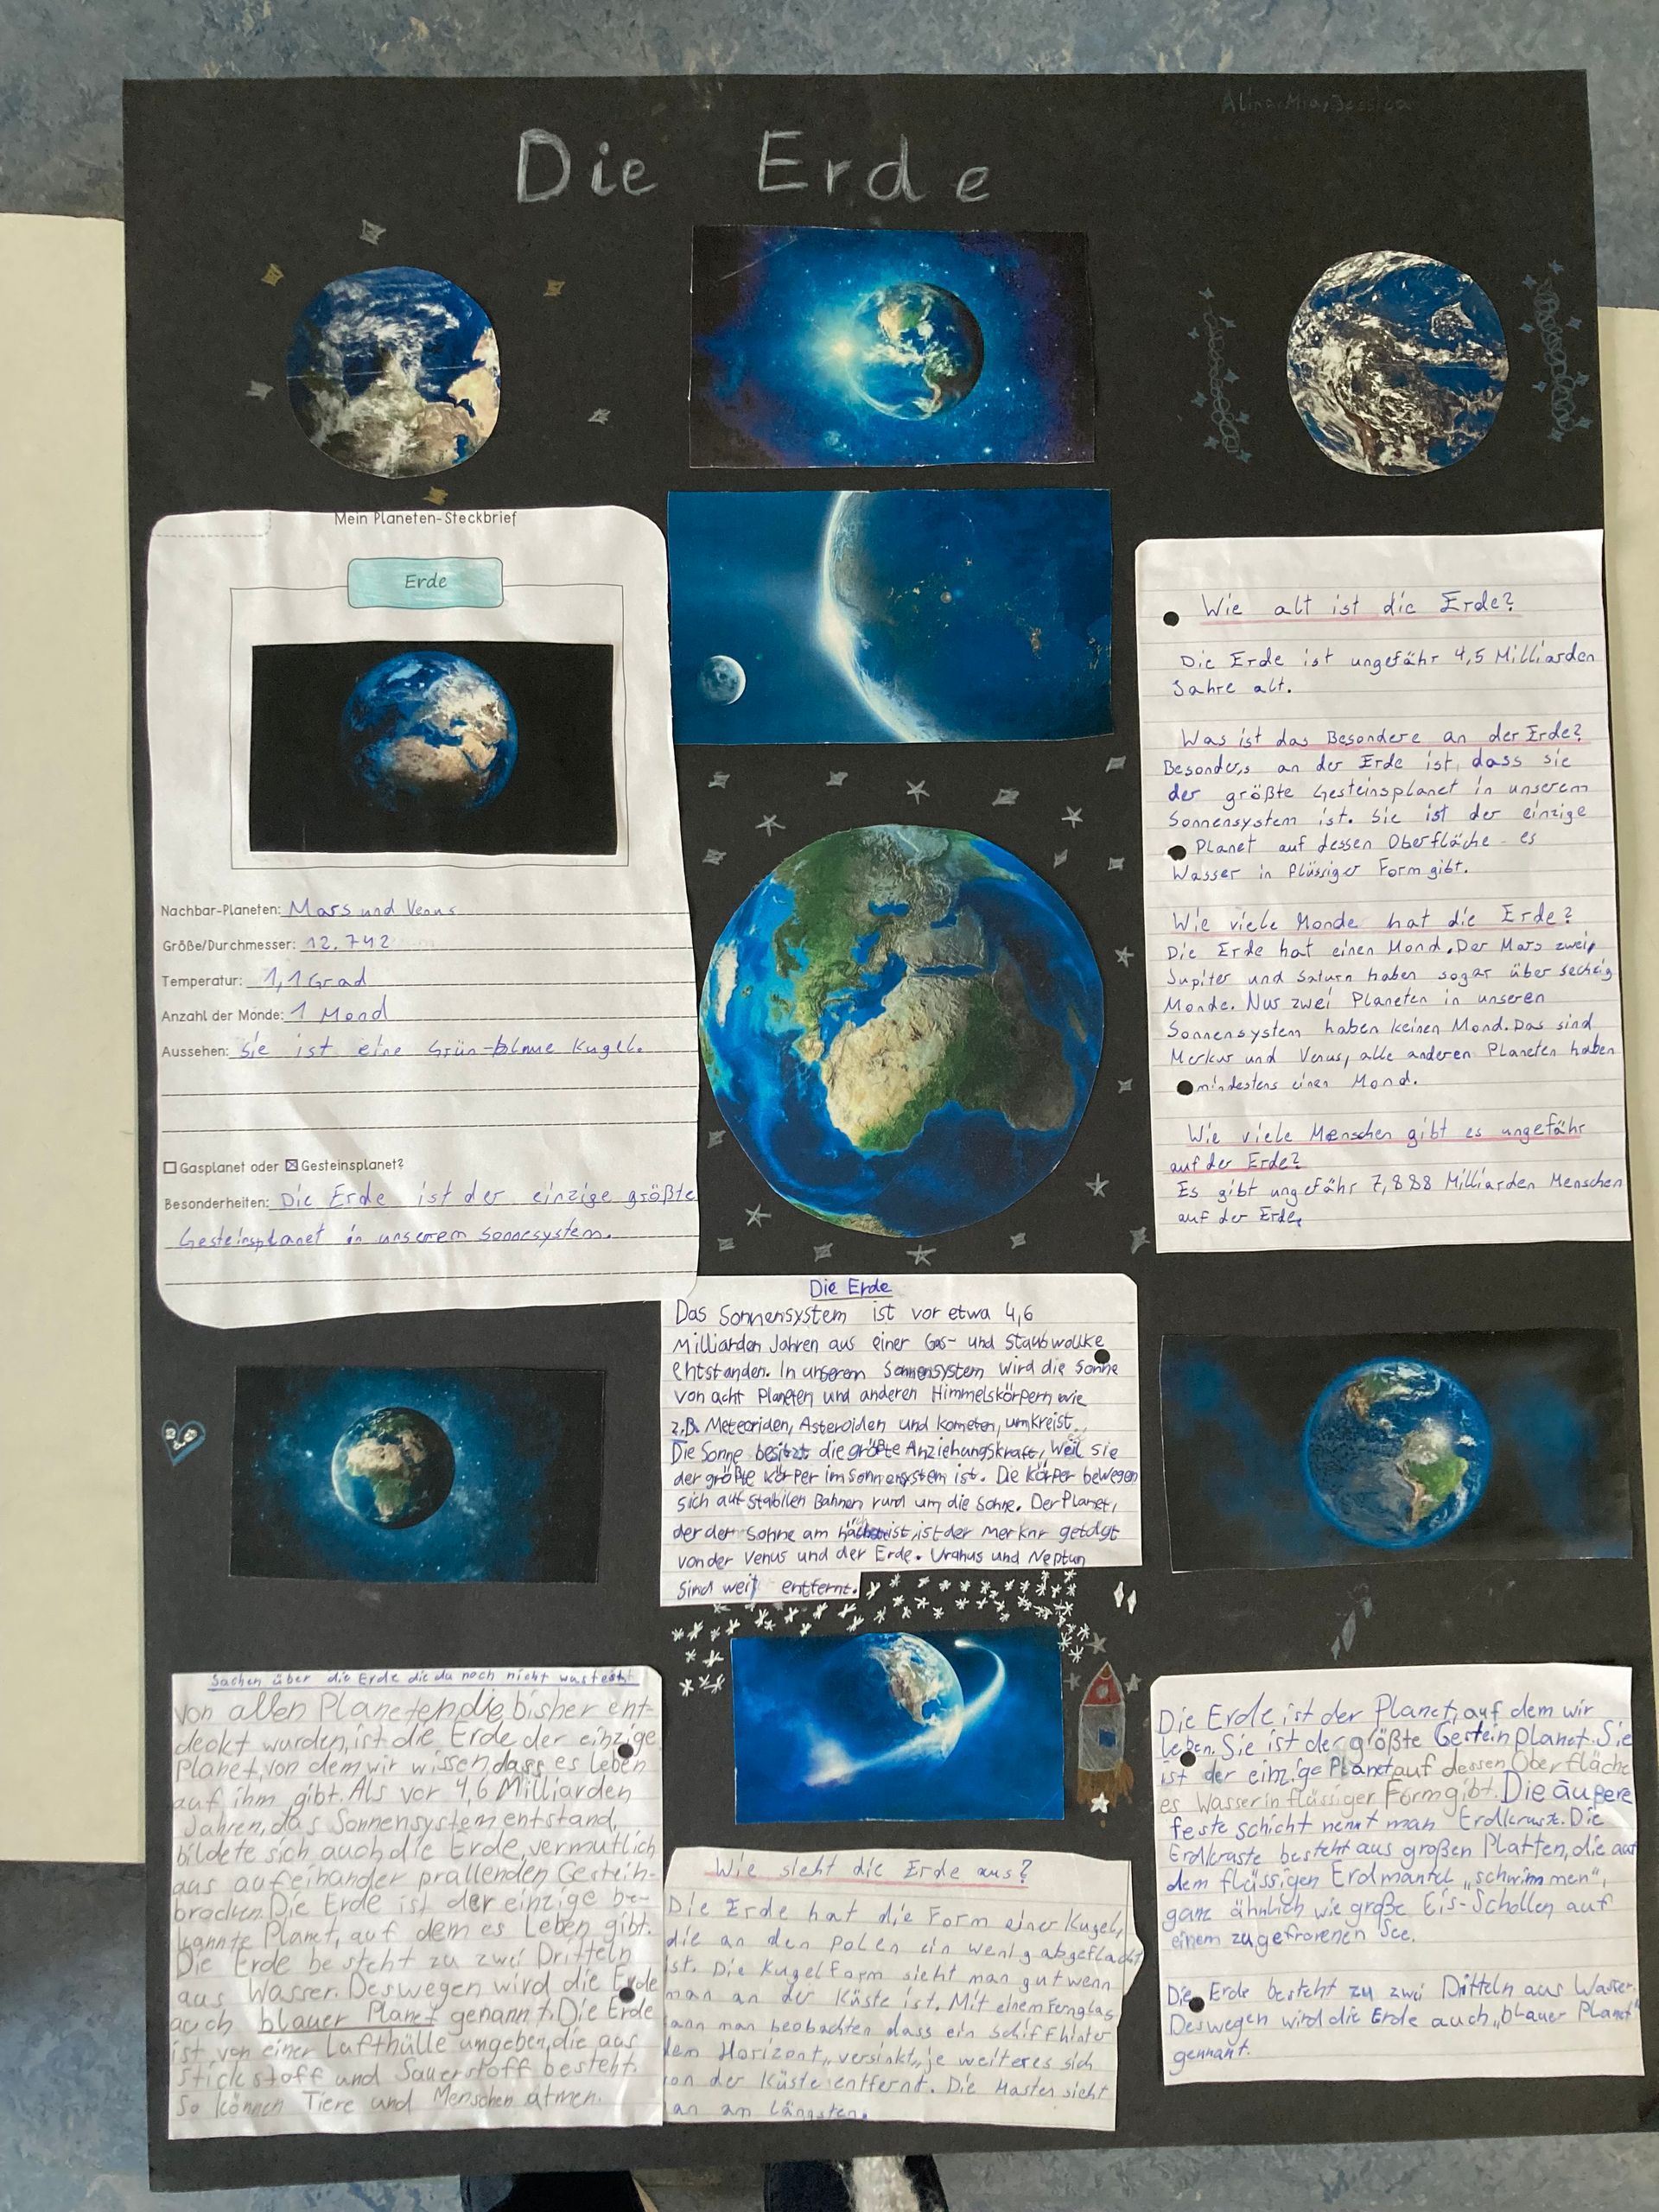 Alina, Mia, Jessica
Die Erde
Mein Planeten-Steckbrief
Erde
Nachbar-Planeten: Mars und Venus
Größe/Durchmesser: 12.742
Temperatur: 1,1 Grad
Anzahl der Monde: 1 Mond
Aussehen: Sie ist eine Grün-blaue Kugel.
Gasplanet oder ☒ Gesteinsplanet?
Besonderheiten: Die Erde ist der einzige größte
Gesteinsplanet in unserem Sonnesystem.
Wie alt ist die Erde?
Die Erde ist ungefähr 4,5 Milliarden
Jahre alt.
Was ist das Besondere an der Erde?
Besonders an der Erde ist, dass sie
der größte Gesteinsplanet in unserem
Sonnensystem ist. Sie ist der einzige
Planet auf dessen Oberfläche es
Wasser in flüssiger Form gibt.
Wie viele Monde hat die Erde?
Die Erde hat einen Mond. Der Mars zwei,
Jupiter und Saturn haben sogar über sechzig
Monde. Nur zwei Planeten in unseren
Sonnensystem haben keinen Mond. Das sind
Merkur und Venus, alle anderen Planeten haben
mindestens einen Mond.
Wie viele Menschen gibt es ungefähr
auf der Erde?
Es gibt ungefähr 7,888 Milliarden Menschen
auf der Erde.
Die Erde
Das Sonnensystem ist vor etwa 4,6
Milliarden Jahren aus einer Gas- und Staubwollke
entstanden. In unserem Sonnensystem wird die Sonne
von acht Planeten und anderen Himmelskörpern wie
z.B. Meteoriden, Asteroiden und Kometen, umkreist.
Die Sonne besitzt die größte Anziehungskraft, weil sie
der größte Körper im Sonnensystem ist. Die Körper bewegen
sich auf stabilen Bahnen rund um die Sonne. Der Planet,
der der Sonne am nächst ist, ist der Merkur gefolgt
von der Venus und der Erde. Uranus und Neptun
sind weit entfernt.
Sachen über die Erde die du noch nicht wustest
Von allen Planeten die bisher ent-
deckt wurden, ist die Erde der einzige
Planet, von dem wir wissen, dass es Leben
auf ihm gibt. Als vor 4,6 Milliarden
Jahren, das Sonnensystem entstand,
bildete sich auch die Erde, vermutlich
aus aufeinander prallenden Gestein-
brocken. Die Erde ist der einzige be-
kannte Planet, auf dem es Leben gibt.
Die Erde besteht zu zwei Dritteln
aus Wasser. Deswegen wird die Erde
auch blauer Planet genannt. Die Erde
ist von einer Lufthülle umgeben, die aus
Stickstoff und Sauerstoff besteht.
So können Tiere und Menschen atmen.
Wie sieht die Erde aus?
Die Erde hat die Form einer Kugel,
die an den Polen ein wenig abgeflacht
ist. Die Kugelform sieht man gut wenn
man an der Küste ist. Mit einem Fernglas
kann man beobachten dass ein Schiff hinter
dem Horizont „versinkt„ je weiter es sich
von der Küste entfernt. Die Master sieht
man am längsten.
Die Erde ist der Planet, auf dem wir
leben. Sie ist der größte Gestein planet. Sie
ist der einzige Planet auf dessen Oberfläche
es Wasser in flüssiger Form gibt. Die äußere
feste schicht nennt man Erdkruste. Die
Erdkruste besteht aus großen Platten, die auf
dem flüssigen Erdmantel „schwimmen",
ganz ähnlich wie große Eis-Schollen auf
einem zugefrorenen See.
Die Erde besteht zu zwei Dritteln aus Wasser.
Deswegen wird die Erde auch „blauer Planet"
gennant.